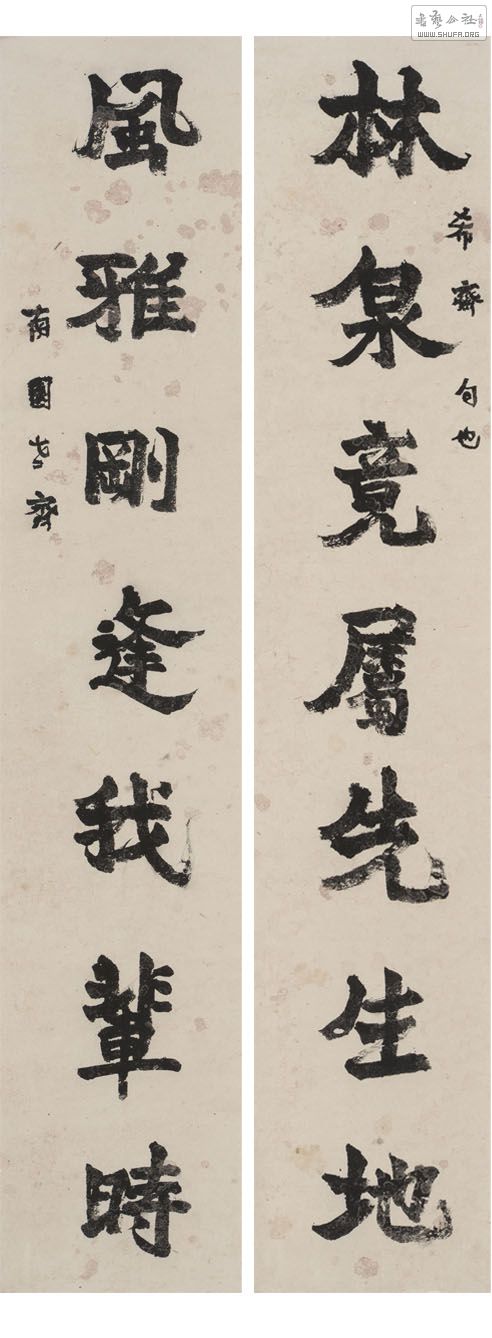 林泉竟屬先生地
希齋句也
風雅剛逢我輩時
南園老齋
書藝公社
www.SHUFA.ORG